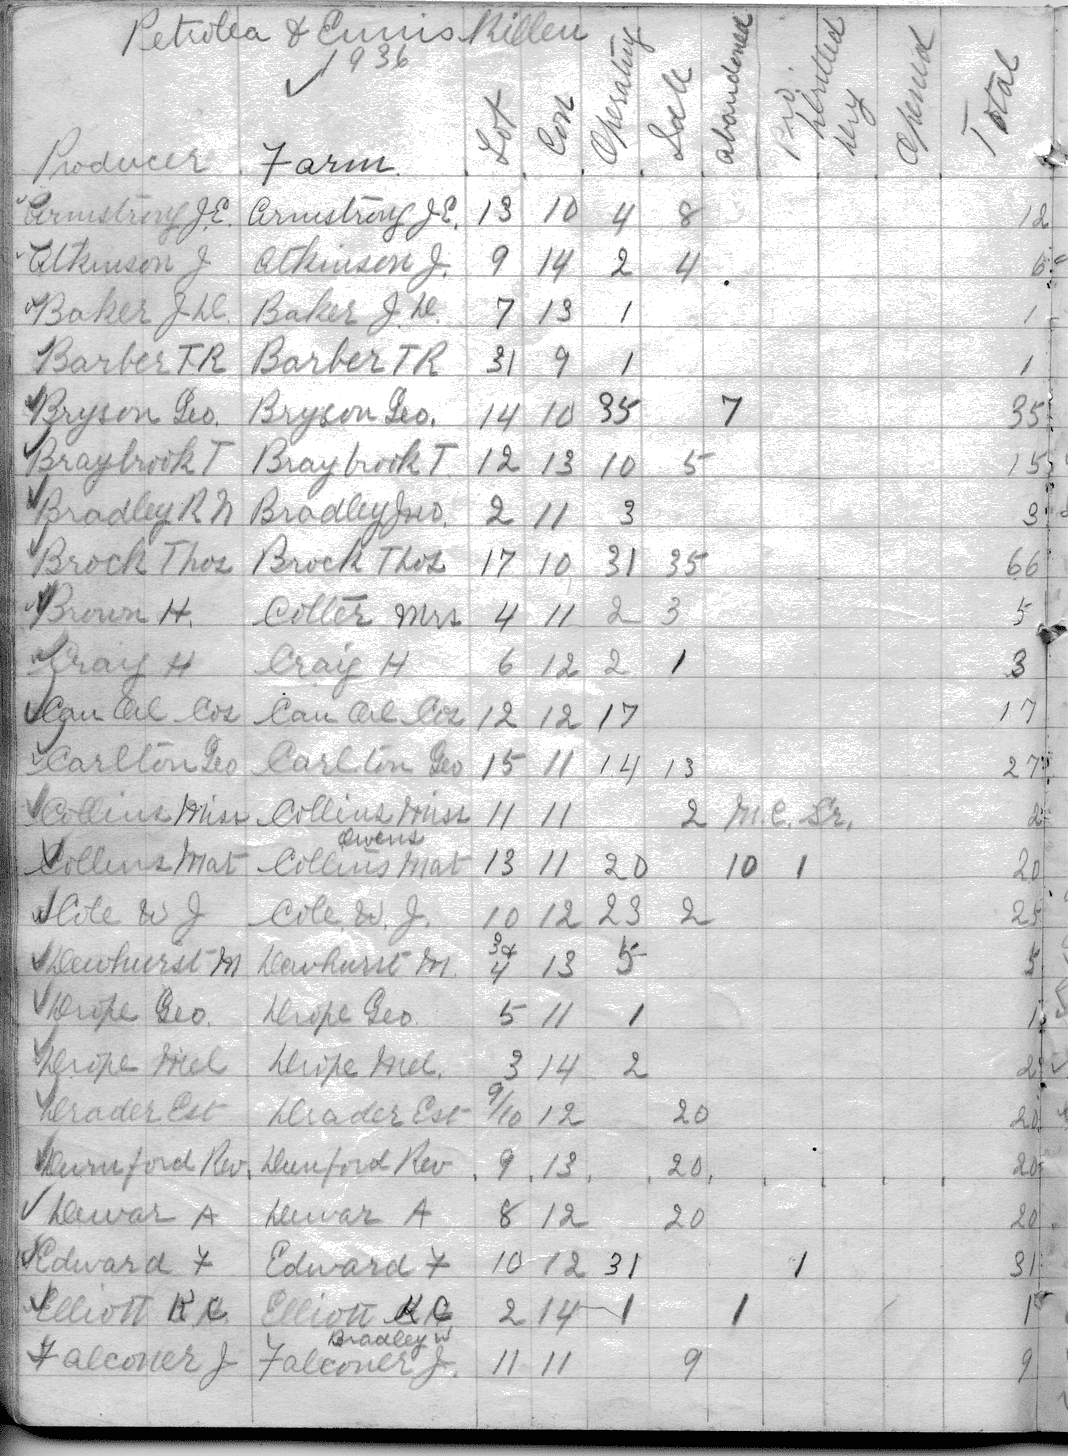 Petrolea & Ennis Killen
1936
Producer Farm. Lot Con Operating Idle abandoned Drilled dry Opened Total
Armstrong J.E. Armstrong J.E. 13 10 4 8 12
Atkinson J Atkinson J. 9 14 2 4 6
Baker J.D. Baker J.D. 7 13 1 1
Barber T R Barber T R 31 9 1 1
Bryson Geo. Bryson Geo. 14 10 35 7 35
Braybrook T Braybrook T. 12 13 10 5 15
Bradley R N Bradley Jno. 2 11 3 3
Brock Thos Brock Thos 17 10 31 35 66
Brown H. Colter Mrs 4 11 2 3 5
Craig H Craig H 6 12 2 1 3
Can Oil Cos Can Oil Cos 12 12 17 17
Carlton Geo Carlton Geo 15 11 14 13 27
Collins Miss Collins Miss 11 11 2 M.C. Sr. 2
Owens
Collins Mat Collins Mat 13 11 20 10 1 20
Cole W J Cole W. J. 10 12 23 2 25
Dewhurst M Dewhurst M. 3 & 4 13 5 5
Drope Geo. Drope Geo. 5 11 1 1
Drope Mel Drope Mel. 3 14 2 2
Drader Est Drader Est 9/10 12 20 20
Durnford Rev. Dunford Rev 9 13 20 20
Dewar A Dewar A 8 12 20 20
Edward F Edward F 10 12 31 1 31
Elliott Elliott 2 14 1 1 1
Bradley W
Falconer J Falconer J. 11 11 9 9